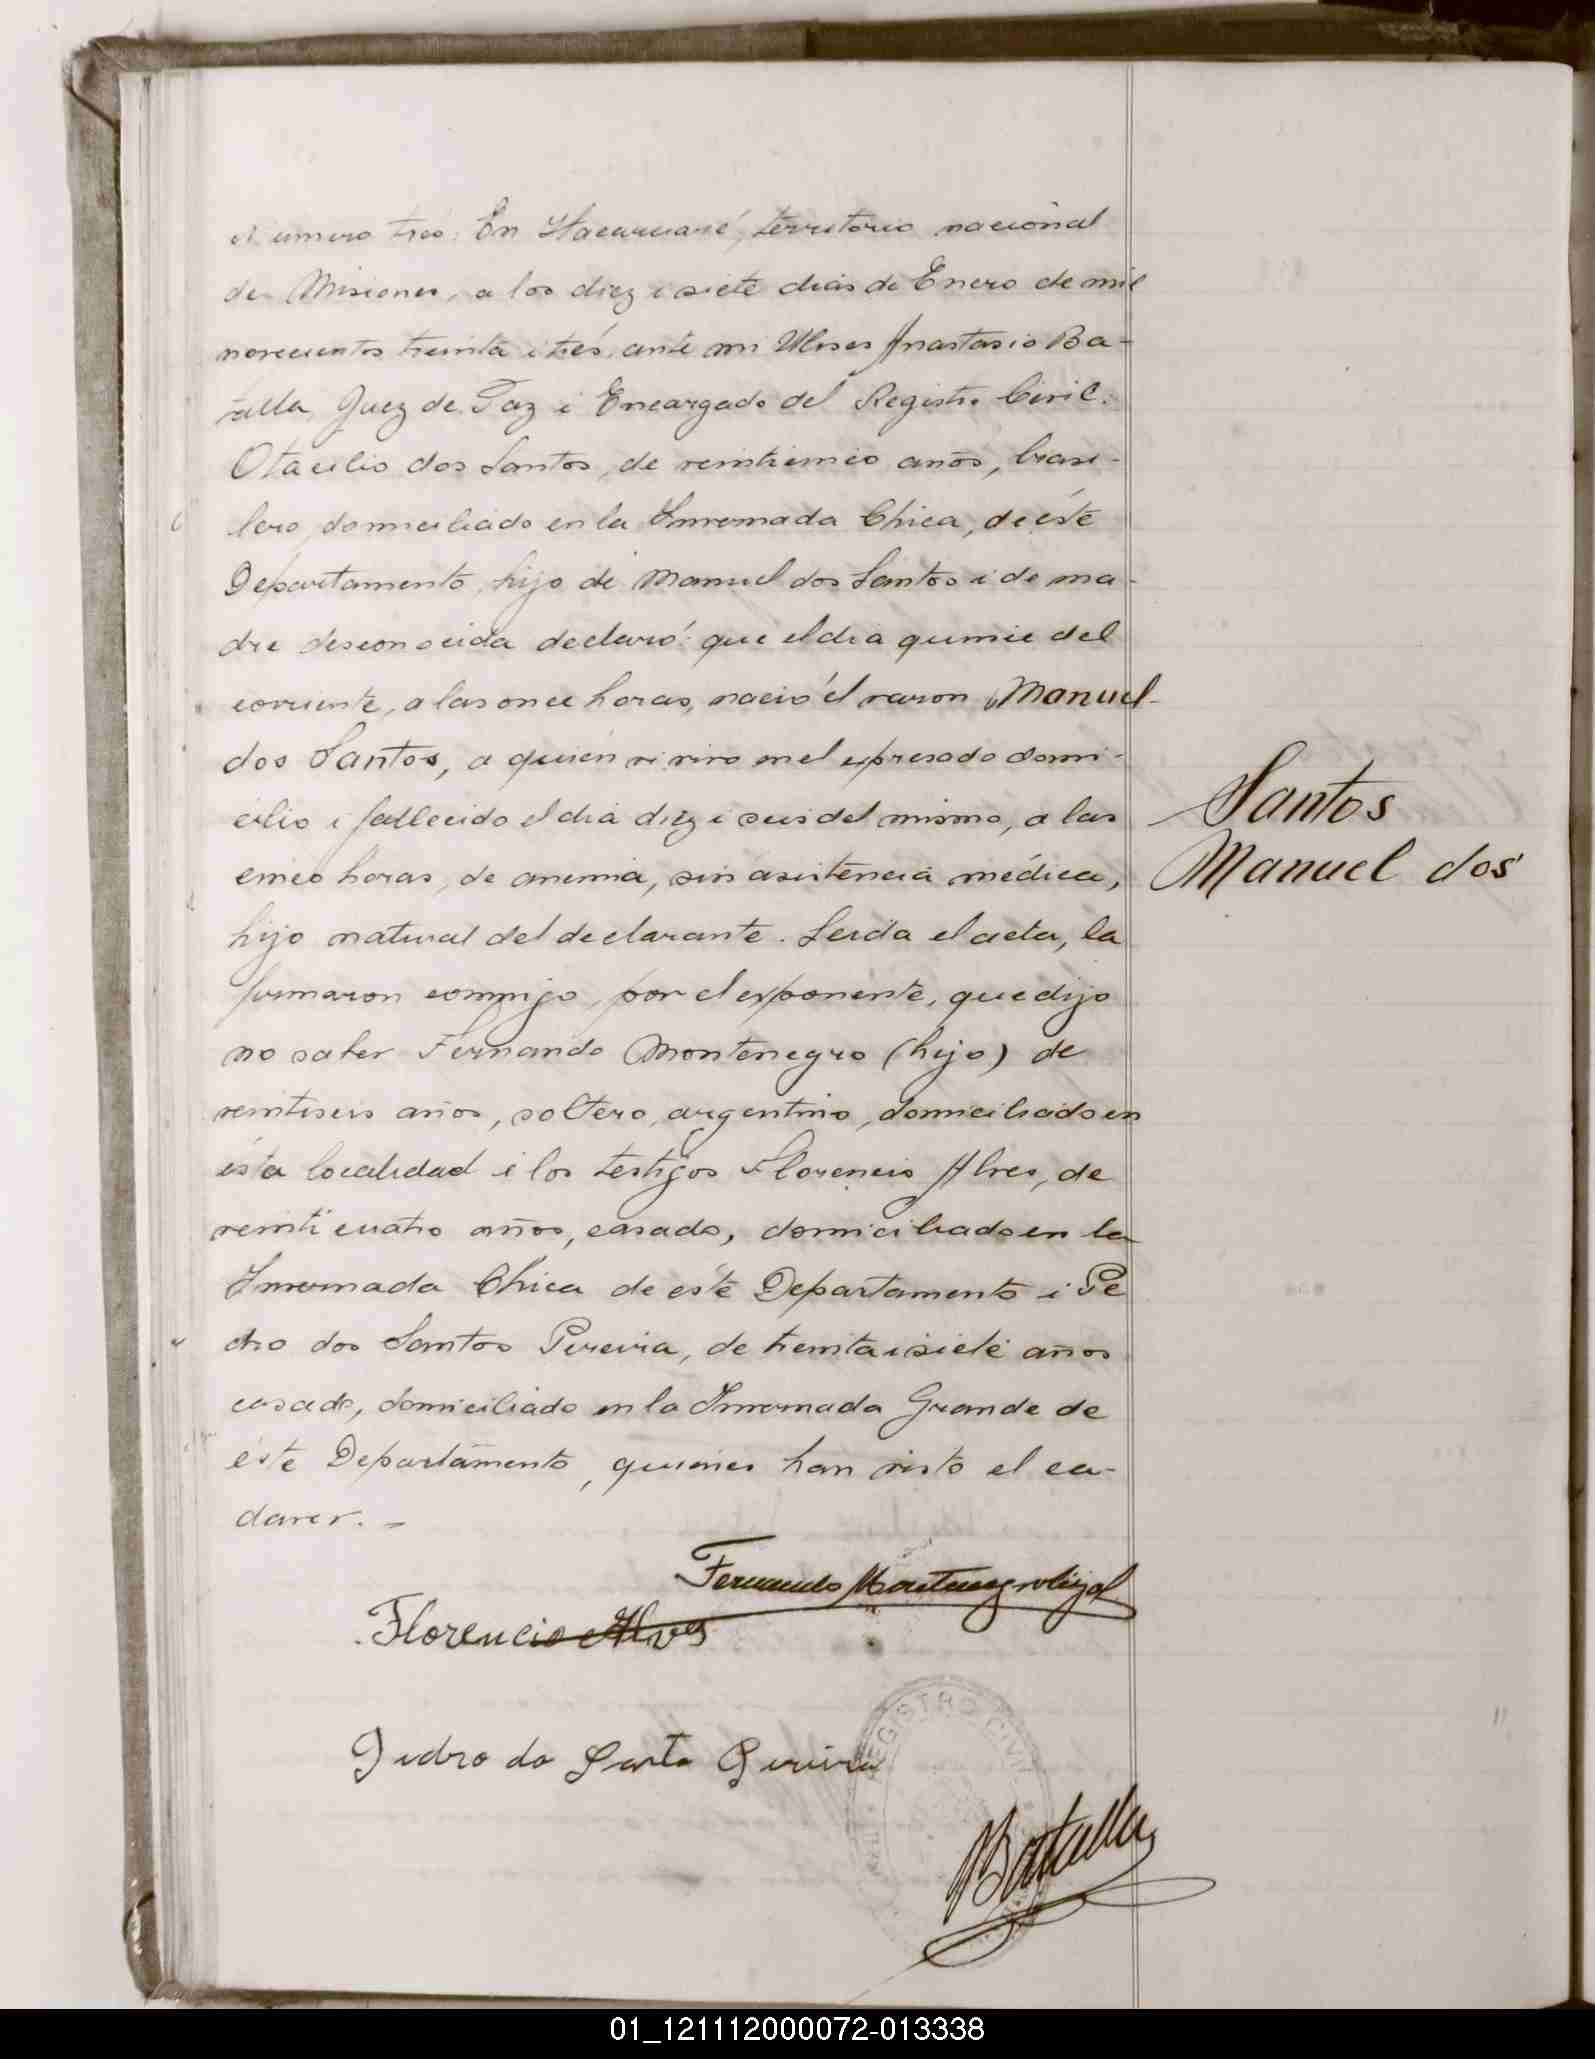 Número tres: En Itacaruaré, territorio nacional
de Misiones, a los diez i siete dias de Enero de mil
novecientos treinta i tres, ante mi Ulises Anastasio Ba-
talla, Juez de Paz i Encargado del Registro Civil.
Otacilio dos Santos, de veinticinco años, brasi-
lero, domiciliado en la Invernada Chica, de éste
Departamento, hijo de Manuel dos Santos i de ma-
dre desconocida declaró: que el dia quince del
corriente, a las once horas, nació el varon Manuel
dos Santos, a quién vi vivo en el expresado domi-
cilio i fallecido el dia diez i seis del mismo, a las
cinco horas, de anemia, sin asistencia médica,
hijo natural del declarante. Leida el acta, la
firmaron conmigo, por el exponente, que dijo
no saber Fernando Montenegro (hijo) de
veintiseis años, soltero, argentino, domiciliado en
ésta localidad i los testigos Florencio Alves, de
veinticuatro años, casado, domiciliado en la
Invernada Chica de éste Departamento i Pe
dro dos Santos Pereira, de treinta i siete años
casado, domiciliado en la Invernada Grande de
éste Departamento, quienes han visto el ca-
daver. -
Santos
Manuel dos
Fernando Montenegro hijo
Florencio Alves
Pedro do Santo Pereira
REGISTRO CIVIL
Batalla
01_121112000072-013338